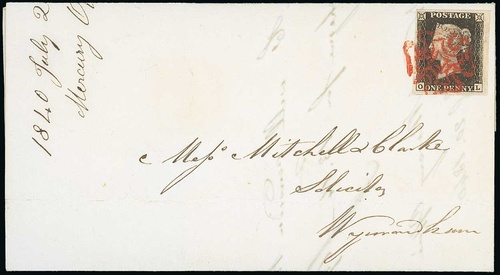 1840 July 2
Mercury
POSTAGE
O ONE PENNY L
Messrs Mitchell & Clarke
Solicitors
Wymondham